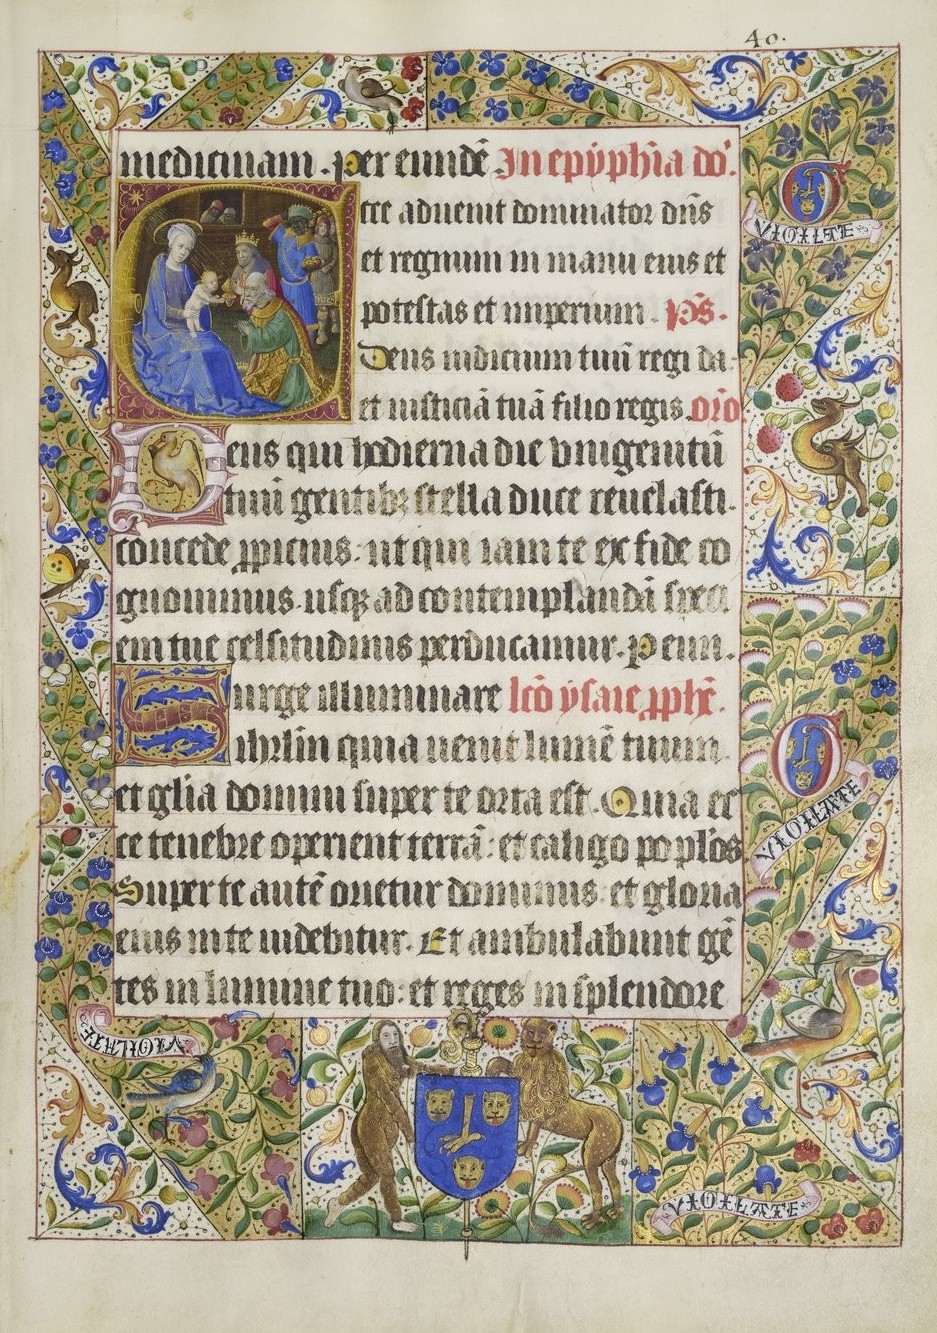 40.
medicinam . per eundē In epyphīa do'.
cce aduenit dominator dn̄s
et regnum in manu eius et
potestas et imperium . ps̄.
Deus iudicium tuū regi da-
et iusticiā tuā filio regis. orō
Deus qui hodierna die vnigenitū
tuū gentibꝫ stella duce reuelasti.
concede ꝓpicius. ut qui iam te ex fide co
gnouimus. usqꝫ ad contemplandā speci
em tue celsitudinis perducamur. p eun.
Surge illuminare lcō ysaie ꝓph̄e.
ihrlm̄ quia uenit lumē tuum.
et gl̄ia domini super te orta est. Quia ec
ce tenebre operient terrā: et caligo poplōs
Super te autē orietur dominus. et gloria
eius in te uidebitur. Et ambulabunt gē
tes in lumine tuo: et reges in splendore
VIOILTE
VIOILATE
VIOILATE